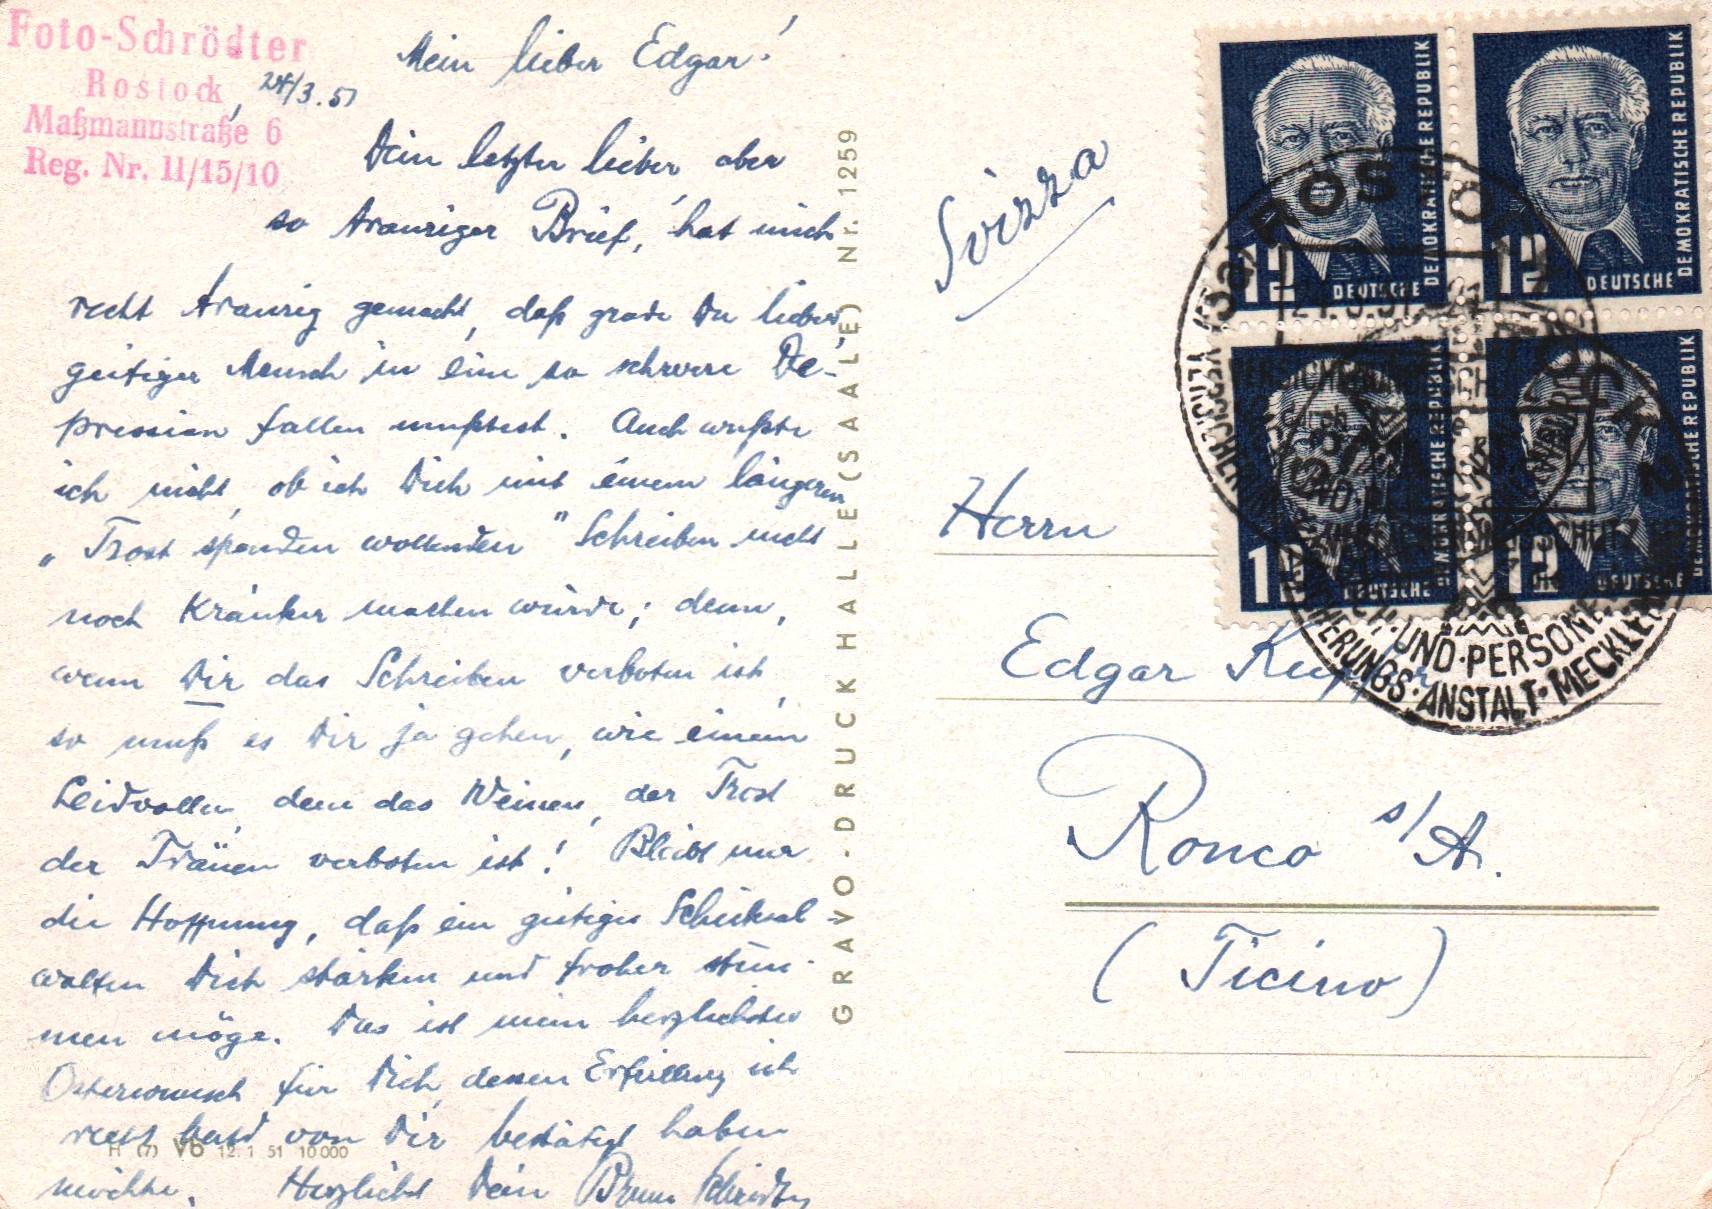 Foto-Schrödter
Rostock, 24/3.51
Maßmannstraße 6
Reg. Nr. 11/15/10
Mein lieber Edgar!
Dein letzter lieber aber
so trauriger Brief, hat mich
recht traurig gemacht, daß grade Du lieber
gütiger Mensch in eine so schwere De-
pression fallen mußtest. Auch wußte
ich nicht, ob ich Dich mit einem längeren
„Trost spenden wollenden" Schreiben nicht
noch kränker machen würde; denn,
wenn Dir das Schreiben verboten ist,
so muß es Dir ja gehen, wie einem
Leidvollen, dem das Weinen, der Trost
der Tränen verboten ist! Bleibt nur
die Hoffnung, daß ein gütiges Schicksal
walten Dich stärken und froher stim-
men möge. Das ist mein herzlichster
Osterwunsch für Dich, dessen Erfüllung ich
recht bald von Dir bestätigt haben
möchte. Herzlichst Dein Bruno Schrödter
H (7) Vb 12. 1 51 10 000
GRAVO-DRUCK HALLE (SAALE) Nr. 1259
Svizza
Herrn
Edgar Kupfer
Ronco s/A.
(Ticino)
DEUTSCHE DEMOKRATISCHE REPUBLIK
12
DEUTSCHE DEMOKRATISCHE REPUBLIK
12
DEUTSCHE DEMOKRATISCHE REPUBLIK
12
DEUTSCHE DEMOKRATISCHE REPUBLIK
12
ROSTOCK 2
UND PERSONEN
VERSICHERUNGS-ANSTALT MECKLENBURG